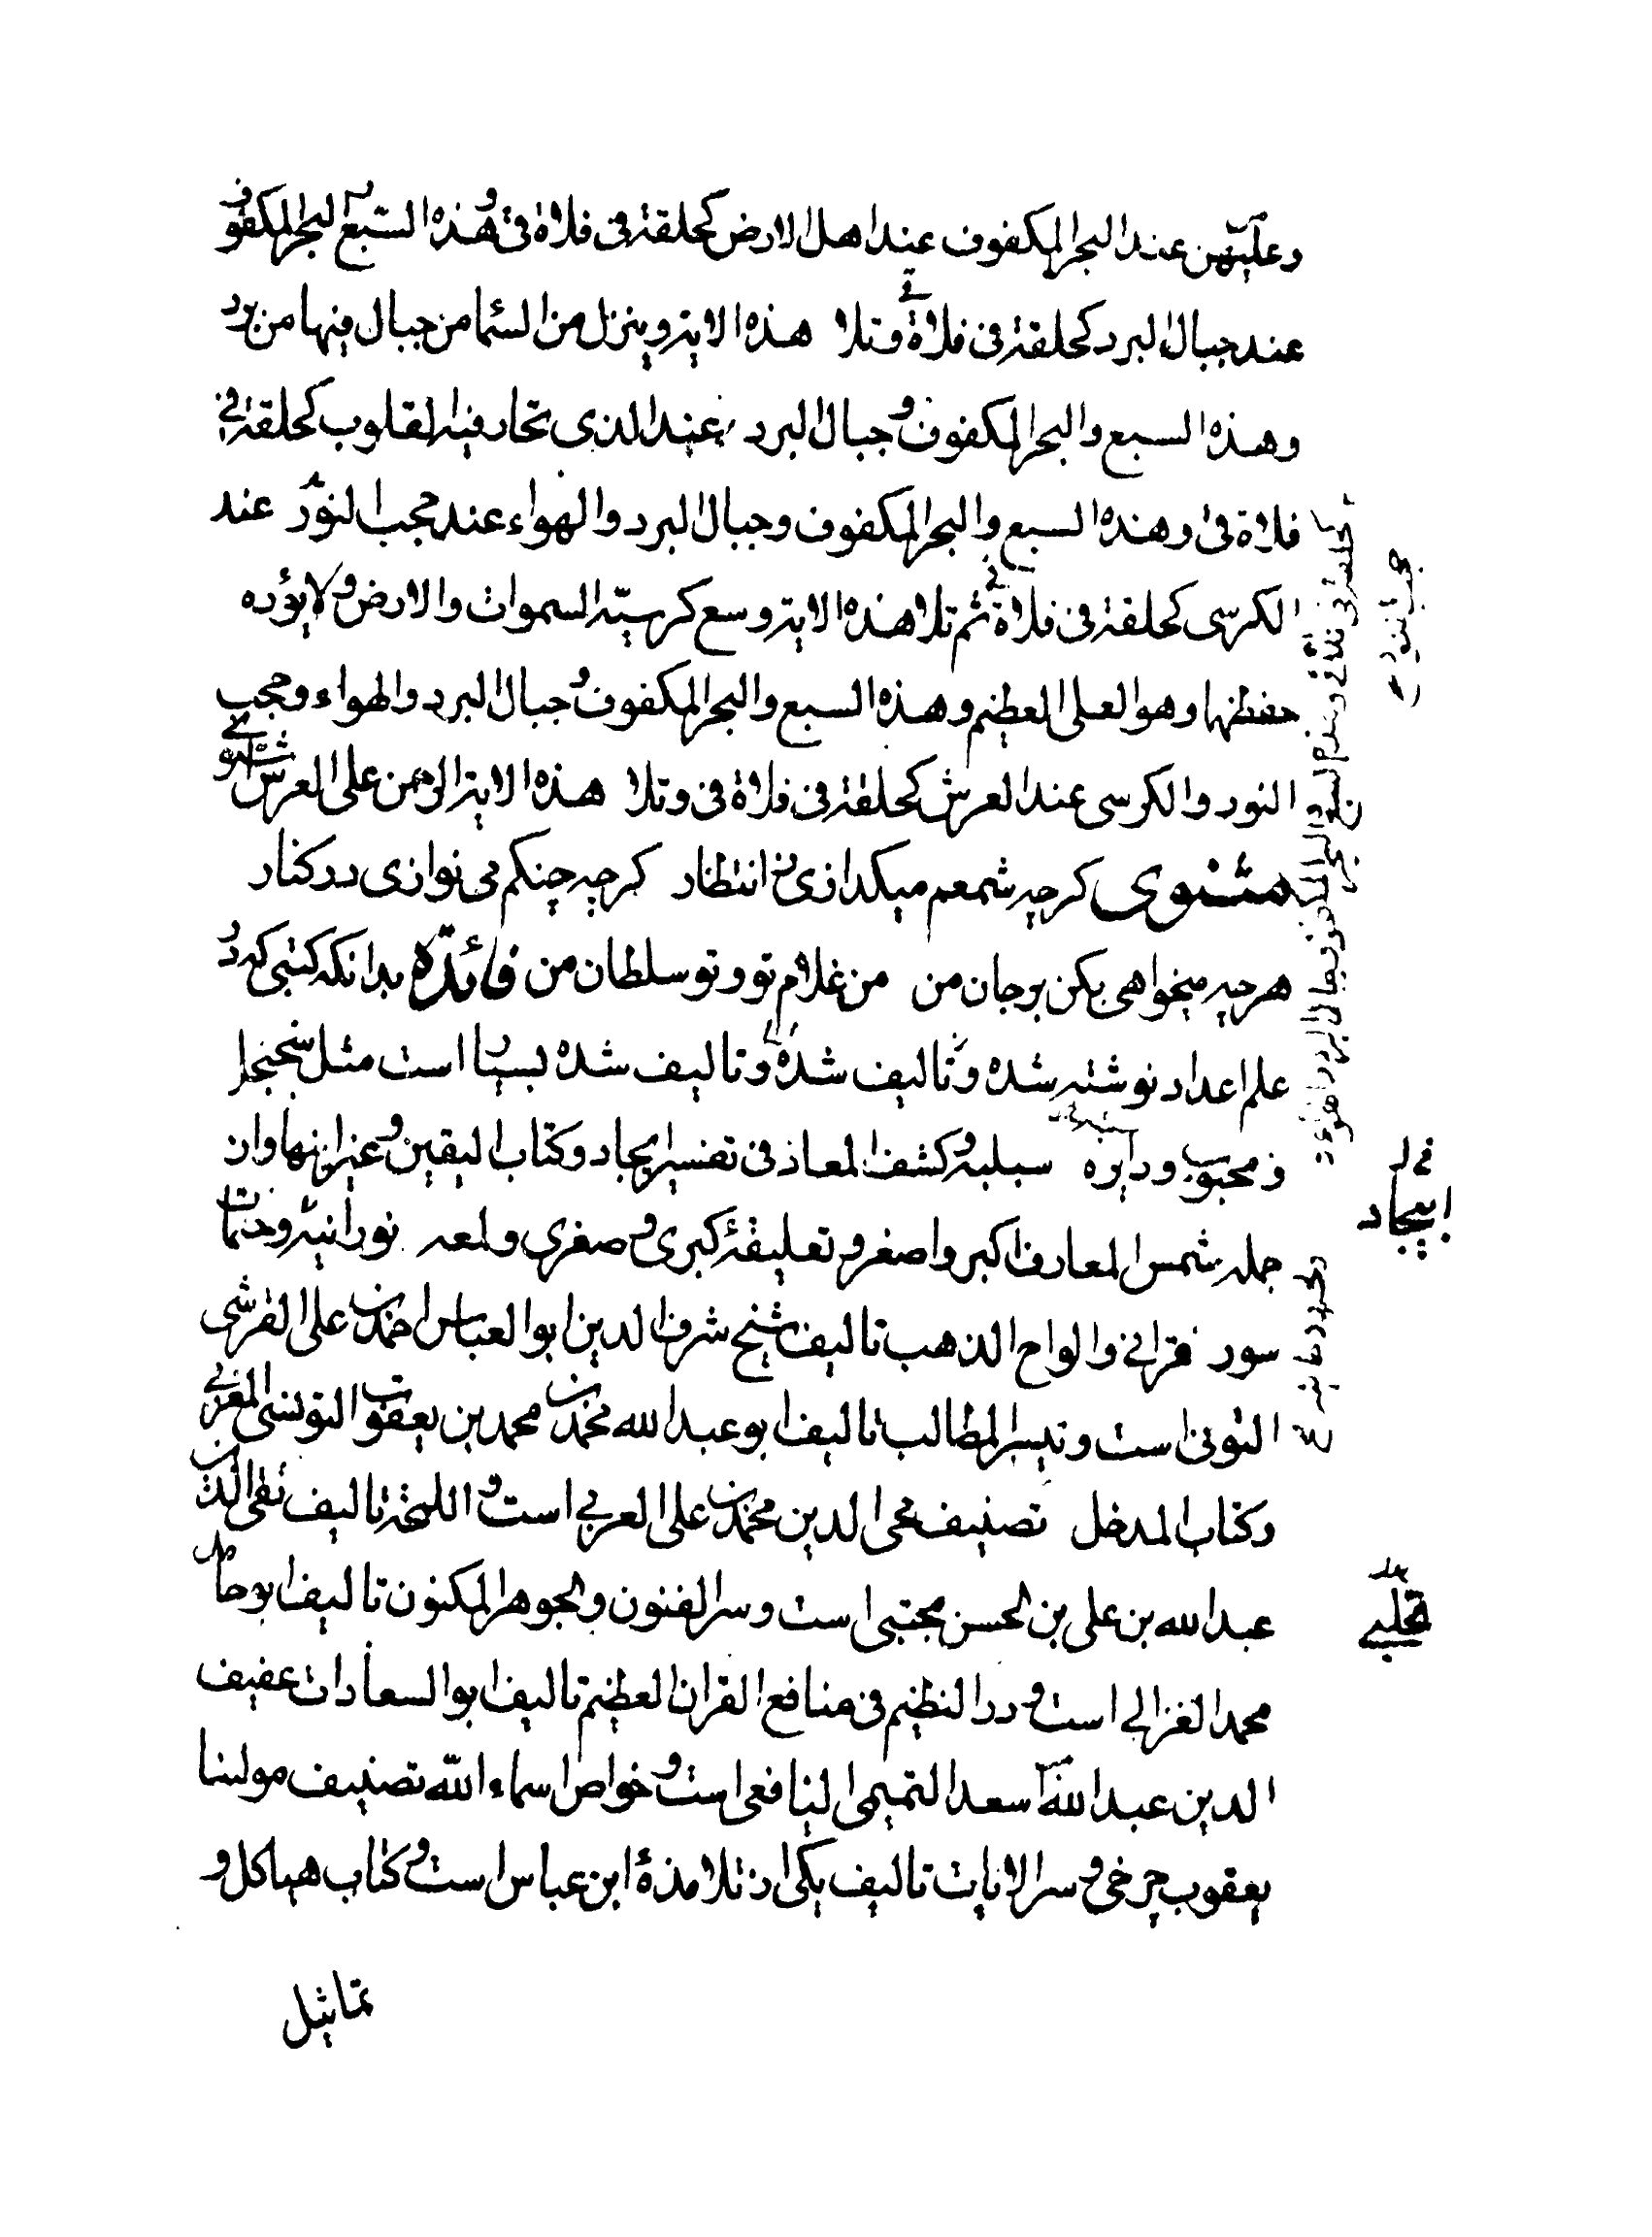 وعلیهن عند البحر المکفوف عند اهل الارض کحلقة فی فلاة قی و هذه السبع و البحر المکفوف
عند جبال البرد کحلقة فی فلاة قی وتلا هذه الایة و ینزل من السماء من جبال فیها من برد
وهذه السبع والبحر المکفوف و جبال البرد عند الذی تحار فیه القلوب کحلقة فی
فلاة قی وهذه السبع والبحر المکفوف وجبال البرد والهواء عند حجب النور عند
الکرسی کحلقة فی فلاة قی ثم تلا هذه الایة وسع کرسیه السموات والارض و لا یؤده
حفظهما وهو العلی العظیم وهذه السبع والبحر المکفوف و جبال البرد والهواء وحجب
النور والکرسی عند العرش کحلقة فی فلاة قی وتلا هذه الایة الرحمن علی العرش استوی
مثنوی کرچه شمعم میکدازی ز انتظار کرچه چنکم می نوازی در کنار
هرچه میخواهی بکن بر جان من من غلام تو و تو سلطان من فائدة بدانکه کتبی که در
علم اعداد نوشته شده و تالیف شده و تالیف شده بسیار است مثل سخنجل
و محبوب و دایره سبلبه و کشف المعاذ فی تفسیر ایجاد و کتاب الیقین و غیر اینها و ان
جمله شمس المعارف اکبر و اصغر و تعلیقهٔ کبری و صغری و لمعه نورانیه و ختمات
سور قرانی و الواح الذهب تالیف شیخ شرف الدین ابو العباس احمد بن علی القرشی
البونی است و تیسیر المطالب تالیف ابو عبد الله محمد بن محمد بن یعقوب التونسی المغربی
وکتاب المدخل تصنیف محی الدین محمد بن علی العربی است و اللمحة تالیف تقی الدین
عبد الله بن علی بن الحسن مجتبی است و سر الفنون والجوهر المکنون تالیف ابو حامد
محمد الغزالی است و در النظیم فی منافع القران العظیم تالیف ابو السعادات عفیف
الدین عبد الله اسعد التمیمی الیافعی است و خواص اسماء الله تصنیف مولینا
یعقوب چرخی و سر الایات تالیف یکی از تلامذهٔ ابن عباس است و کتاب هیاکل و
تماثیل
ایجاد